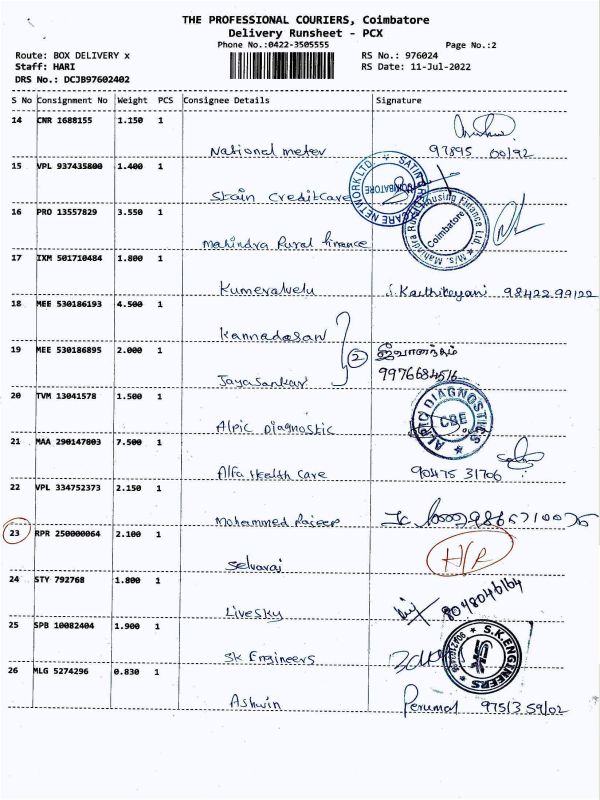 THE PROFESSIONAL COURIERS, Coimbatore
Delivery Runsheet - PCX
Phone No.:0422-3505555
Page No.:2
Route: BOX DELIVERY x
RS No.: 976024
Staff: HARI
RS Date: 11-Jul-2022
DRS No.: DCJB97602402
S No Consignment No Weight PCS Consignee Details Signature
14 CNR 1688155 1.150 1
National meter 97895 00192
15 VPL 937435800 1.400 1
Stain CreditCare
SATIN CREDITCARE NETWORK LTD. COIMBATORE
16 PRO 13557829 3.550 1
Mahindra Rural finance
M/s. Mahindra Rural Housing Finance Ltd. Coimbatore
17 IXM 501710484 1.800 1
Kumeravelu S. Karthikeyani 98422 99122
18 MEE 530186193 4.500 1
Kannadasan
2
19 MEE 530186895 2.000 1
ஜீவானந்தம்
Jayasankar 9976684516
20 TVM 13041578 1.500 1
Alpic Diagnostic
ALPIC DIAGNOSTICS CBE
21 MAA 290147803 7.500 1
Alfa Health Care 90475 31706
22 VPL 334752373 2.150 1
Mohammed Rajeep
23 RPR 250000064 2.100 1
Selvaraj
24 STY 792768 1.800 1
LiveSky 8048046164
25 SPB 10082404 1.900 1
SK Engineers
S.K.ENGINEERS
26 MLG 5274296 0.830 1
Ashwin Perumal 97513 59102